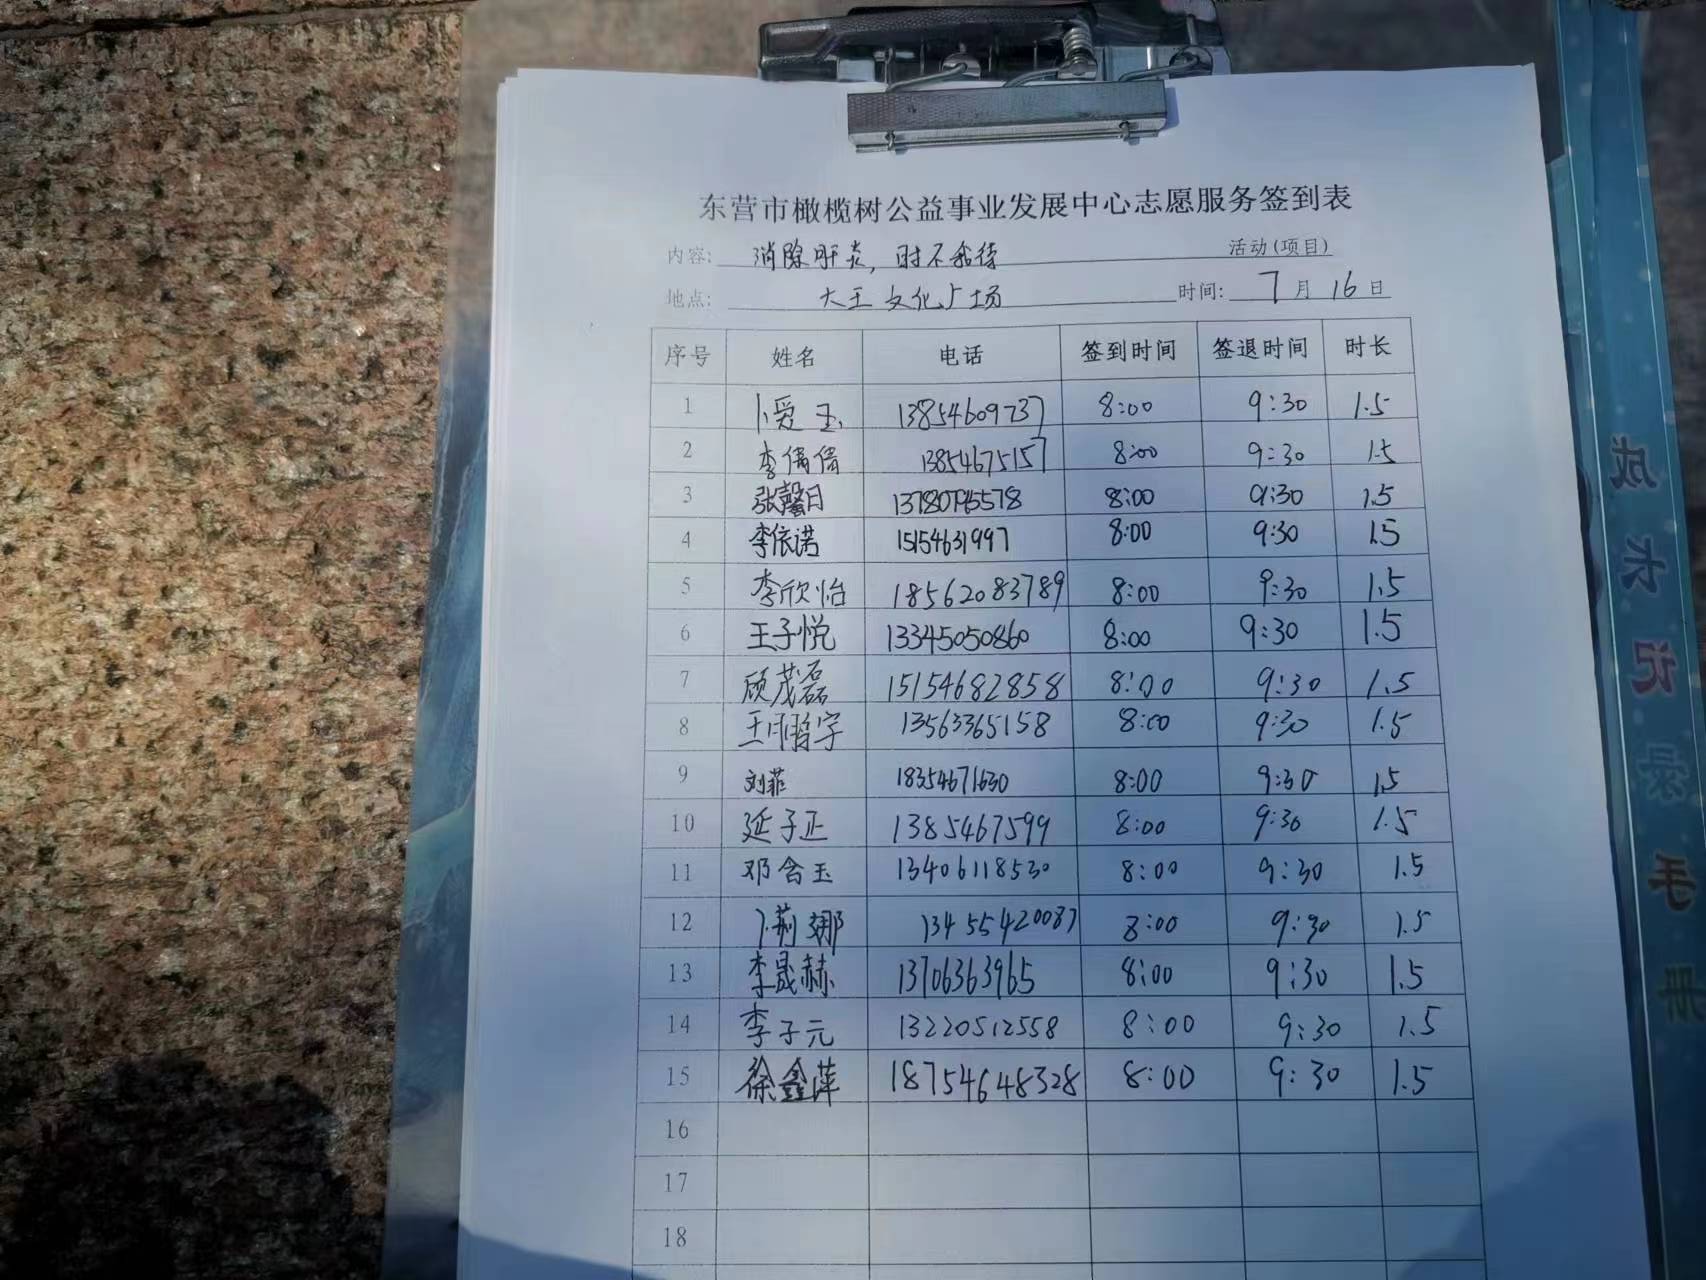 东营市橄榄树公益事业发展中心志愿服务签到表
内容: 消除肝炎，时不我待 活动(项目)
地点: 大王文化广场 时间: 7月16日
序号 姓名 电话 签到时间 签退时间 时长
1 卜爱玉 13854609737 8:00 9:30 1.5
2 李倩倩 13854675157 8:00 9:30 1.5
3 张馨月 8:00 9:30 1.5
4 李依诺 15154631997 8:00 9:30 1.5
5 李欣怡 18562083789 8:00 9:30 1.5
6 王子悦 13345050860 8:00 9:30 1.5
7 顾茂磊 15154682858 8:00 9:30 1.5
8 13563365158 8:00 9:30 1.5
9 刘菲 18354671630 8:00 9:30 1.5
10 延子正 1385467599 8:00 9:30 1.5
11 邓含玉 13406118530 8:00 9:30 1.5
12 卜莉娜 13455420087 8:00 9:30 1.5
13 李晟赫 13706363965 8:00 9:30 1.5
14 李子元 13220512558 8:00 9:30 1.5
15 徐鑫萍 18754648328 8:00 9:30 1.5
16
17
18
成长记录手册